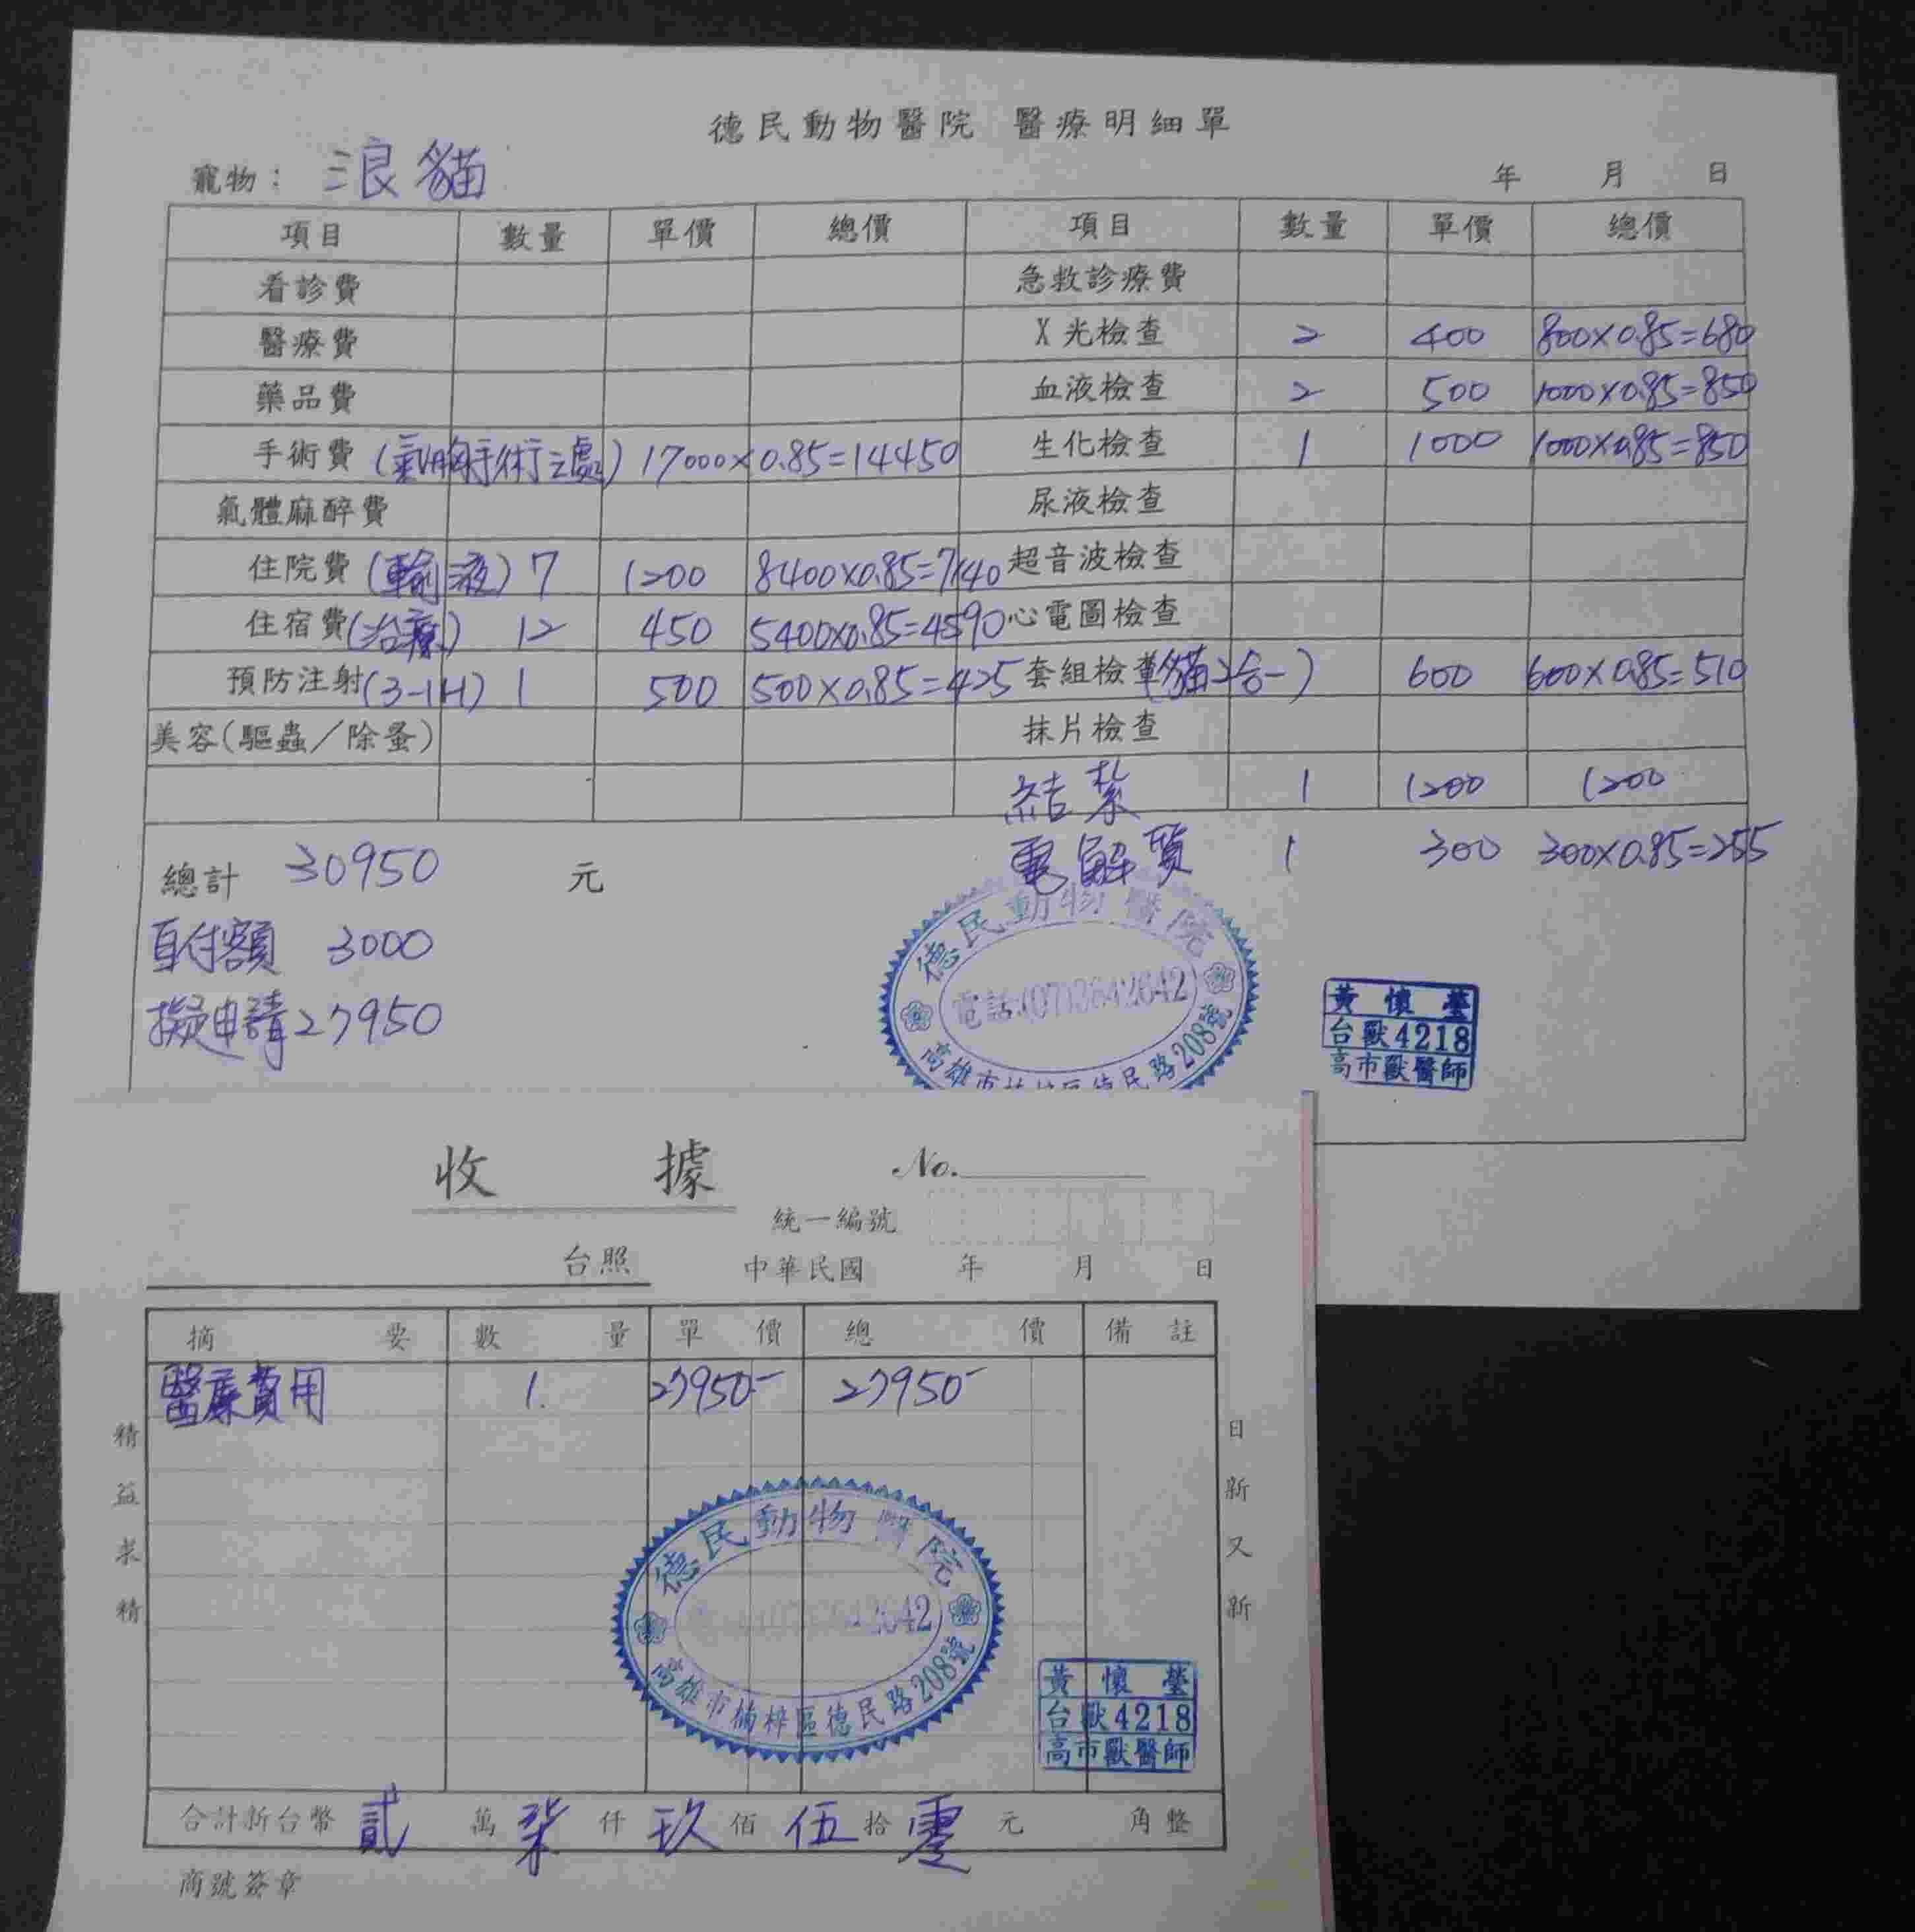 德民動物醫院 醫療明細單
寵物: 浪貓
年 月 日
項目 數量 單價 總價 項目 數量 單價 總價
看診費 急救診療費
醫療費 X光檢查 2 400 800×0.85=680
藥品費 血液檢查 2 500 1000×0.85=850
手術費(氣胸手術2處) 17000×0.85=14450 生化檢查 1 1000 1000×0.85=850
氣體麻醉費 尿液檢查
住院費(輸液) 7 1200 8400×0.85=7140 超音波檢查
住宿費(治療) 12 450 5400×0.85=4590 心電圖檢查
預防注射(3-1H) 1 500 500×0.85=425 套組檢查(貓2合一) 600 600×0.85=510
美容(驅蟲/除蚤) 抹片檢查
結紮 1 1200 1200
總計 30950 元 電解質 1 300 300×0.85=255
自付額 3000
擬申請27950
德民動物醫院
電話:(07)3642642
高雄市 民路208號
黃懷瑩
台獸4218
高市獸醫師
收據 No.
統一編號
台照 中華民國 年 月 日
摘要 數量 單價 總價 備註
醫療費用 1. 27950- 27950-
精益求精
日新又新
德民動物醫院
2642
高雄市楠梓區德民路208號
黃懷瑩
台獸4218
高市獸醫師
合計新台幣 貳 萬 柒 仟 玖 佰 伍 拾 零 元 角整
商號簽章